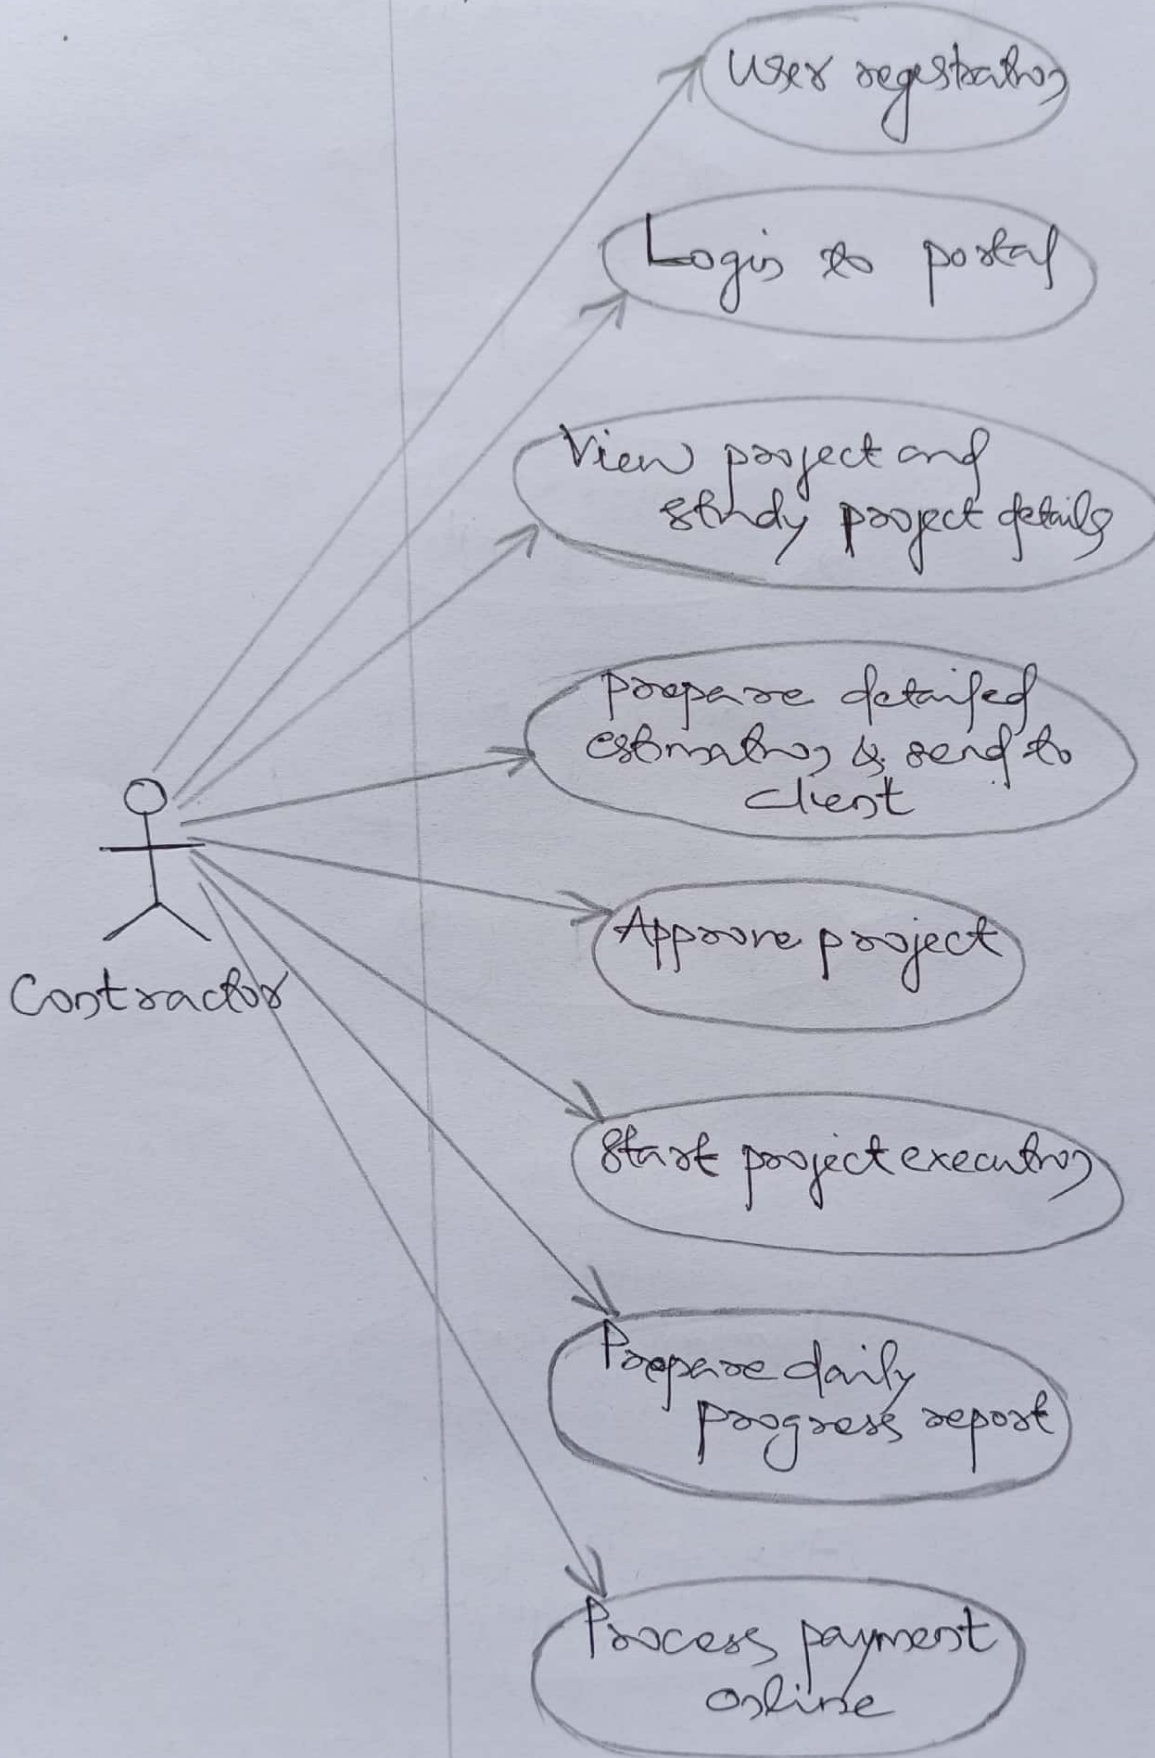 User regestration
Login to portal
View project and
study project details
prepare detailed
estimation & send to
client
Approve project
Contractor
Start project execution
Prepare daily
progress report
Process payment
online